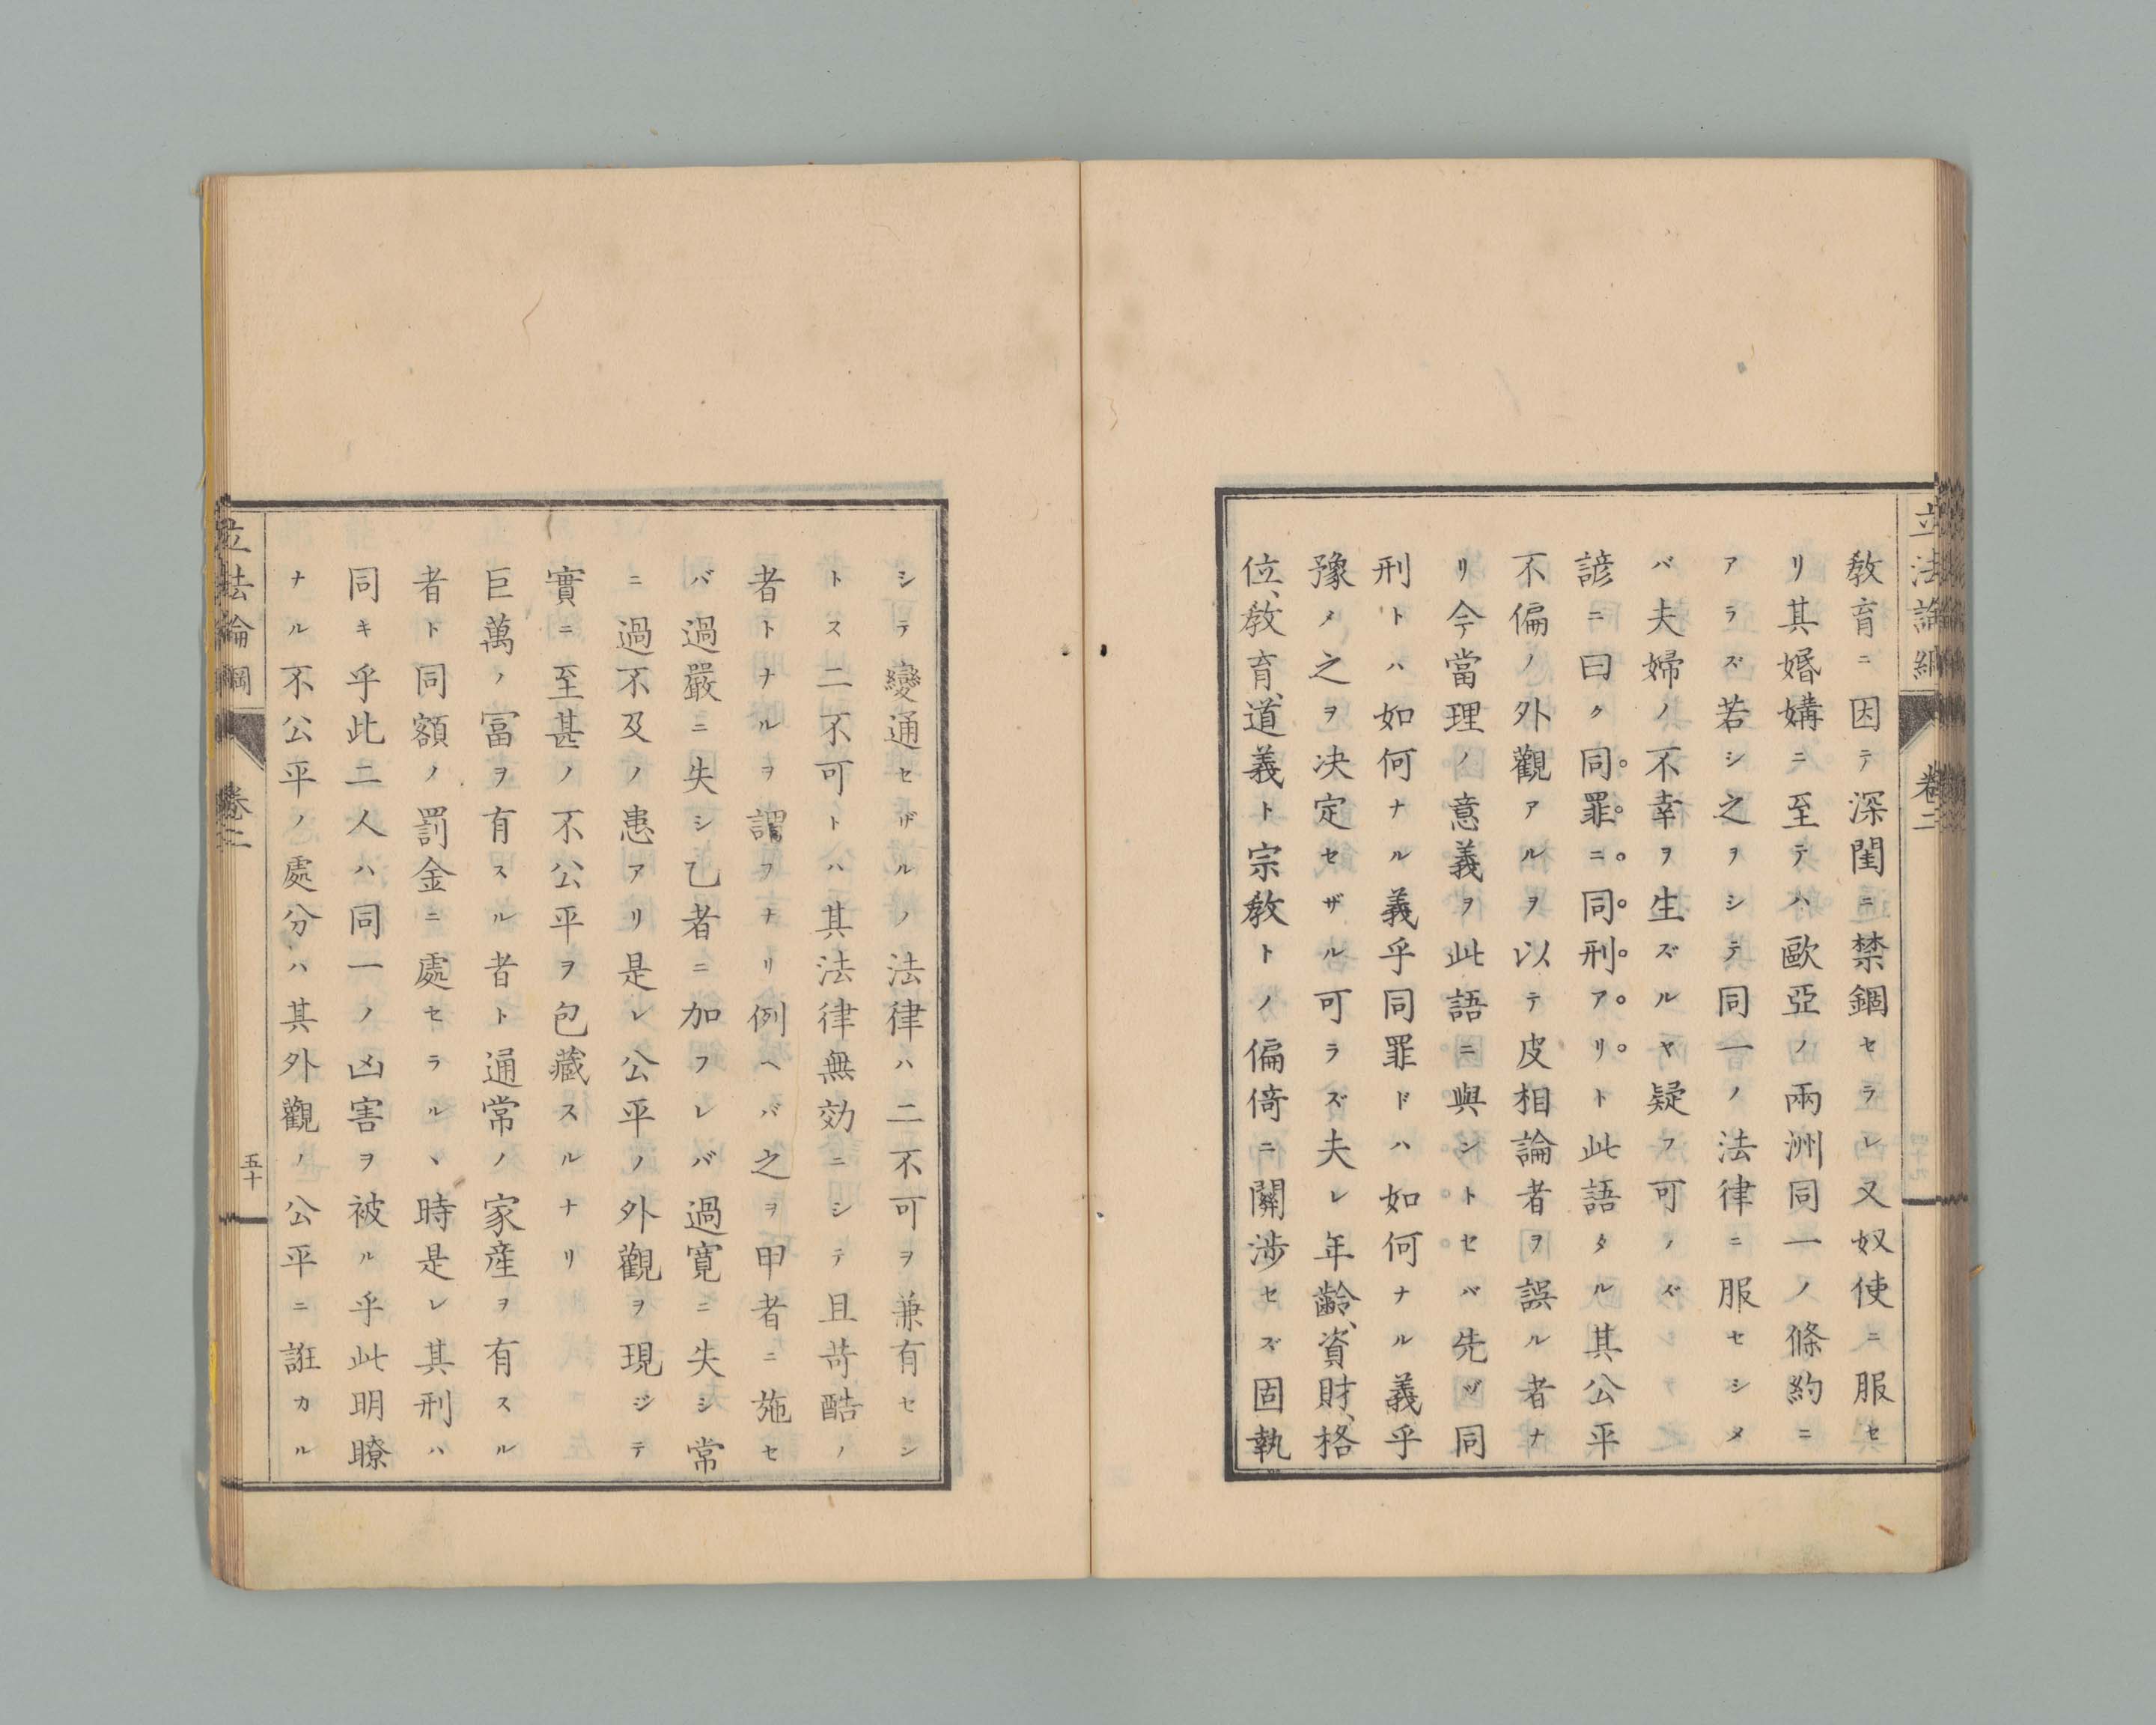 立法論綱 卷二
敎育ニ因テ深閨ニ禁錮セラレ又奴使ニ服セ
リ其婚媾ニ至テハ歐亞ノ兩洲同一ノ條約ニ
アラズ若シ之ヲシテ同一ノ法律ニ服セシメ
バ夫婦ノ不幸ヲ生ズルヤ疑フ可ノズ
諺ニ曰ク同罪ニ同刑アリト此語タル其公平
不偏ノ外觀アルヲ以テ皮相論者ヲ誤ル者ナ
リ今當理ノ意義ヲ此語ニ與ントセバ先ヅ同
刑トハ如何ナル義乎同罪ドハ如何ナル義乎
豫メ之ヲ决定セザル可ラズ夫レ年齡、資財、格
位、敎育、道義ト宗敎トノ偏倚ニ關涉セズ固執
シテ變通セザルノ法律ハ二不可ヲ兼有セシ
トス二不可トハ其法律無効ニシテ且苛酷ノ
者トナルヲ謂ヲナリ例ヘバ之ヲ甲者ニ施セ
バ過嚴ニ失シ乙者ニ加フレバ過寬ニ失シ常
ニ過不及ノ患アリ是レ公平ノ外觀ヲ現ジテ
實ニ至甚ノ不公平ヲ包藏スルナリ
巨萬ノ冨ヲ有スル者ト通常ノ家産ヲ有スル
者ト同額ノ罰金ニ處セラルヽ時是レ其刑ハ
同キ乎此二人ハ同一ノ凶害ヲ被ル乎此明瞭
ナル不公平ノ處分ハ其外觀ノ公平ニ誑カル
立法論綱 卷二 五十